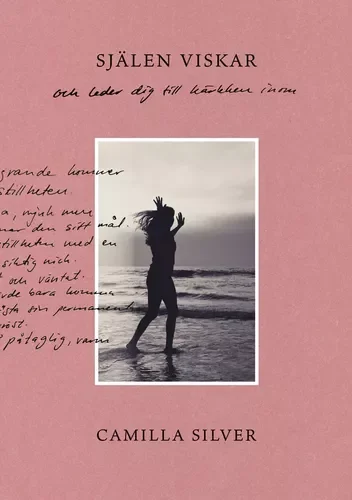 SJÄLEN VISKAR
och leder dig till kärleken inom
grande kommer
stillheten.
a, mjuk men
mar den sitt mål.
stillheten med en
siktig nick.
t och väntat.
rde bara komma
ista som permanent
röst.
påtaglig, varm
CAMILLA SILVER